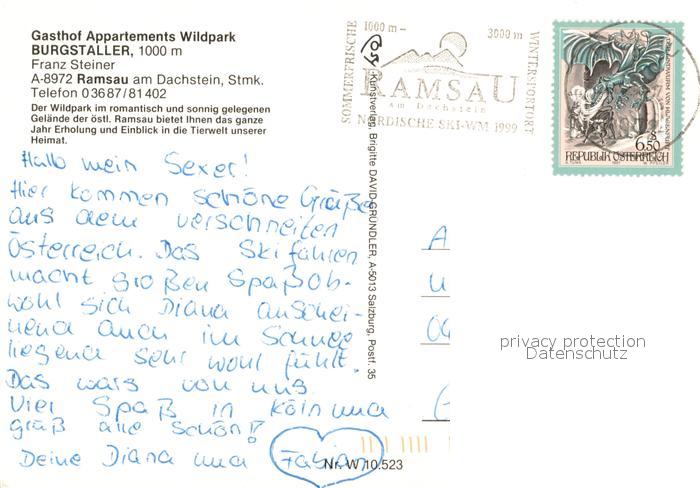 Gasthof Appartements Wildpark
BURGSTALLER, 1000 m
Franz Steiner
A-8972 Ramsau am Dachstein, Stmk.
Telefon 03687/81402
Der Wildpark im romantisch und sonnig gelegenen
Gelände der östl. Ramsau bietet Ihnen das ganze
Jahr Erholung und Einblick in die Tierwelt unserer
Heimat.
Hallo mein Sexer!
Hier kommen schöne Grüße
aus dem verschneiten
Österreich. Das Skifahren
macht großen Spaß ob-
wohl sich Diana anschei-
nend auch im Schnee
liegend sehr wohl fühlt.
Das wars von uns
Viel Spaß in Köln und
grüß alle schön!!
Deine Diana und Fabian
Nr. W 10.523
Kunstverlag, Brigitte DAVID-GRÜNDLER, A-5013 Salzburg, Postf. 35
SOMMERFRISCHE
1000 m –
3000 m
WINTERSPORTORT
RAMSAU
am Dachstein
NORDISCHE SKI-WM 1999
S
6.50
REPUBLIK ÖSTERREICH
A
privacy protection
Datenschutz